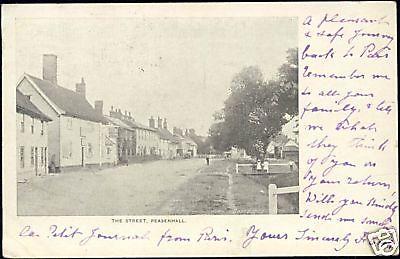 A pleasant
& safe journey
back to Paris
remember me
to all your
family, & tell
me what
they think
of you on
your return,
Will you kindly
send me some
THE STREET, PEASENHALL.
Le Petit Journal from Paris. Yours Sincerely